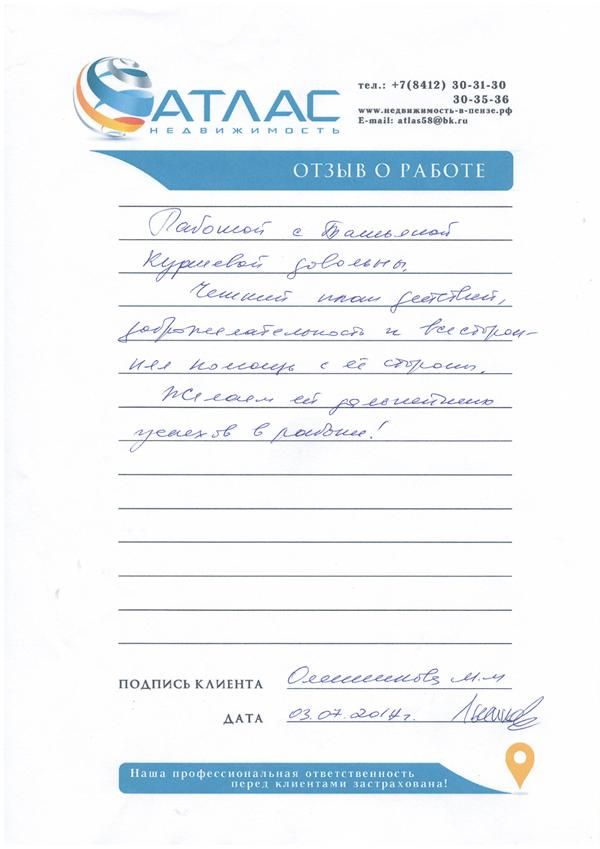 АТЛАС
НЕДВИЖИМОСТЬ
тел.: +7(8412) 30-31-30
30-35-36
www.недвижимость-в-пензе.рф
E-mail: atlas58@bk.ru
ОТЗЫВ О РАБОТЕ
Работой с Татьяной
довольны.
Четкий план действий,
доброжелательность и всесторон-
няя помощь с её стороны.
Желаем ей дальнейших
успехов в работе!
ПОДПИСЬ КЛИЕНТА М.М
ДАТА 03.07.2017г.
Наша профессиональная ответственность
перед клиентами застрахована!